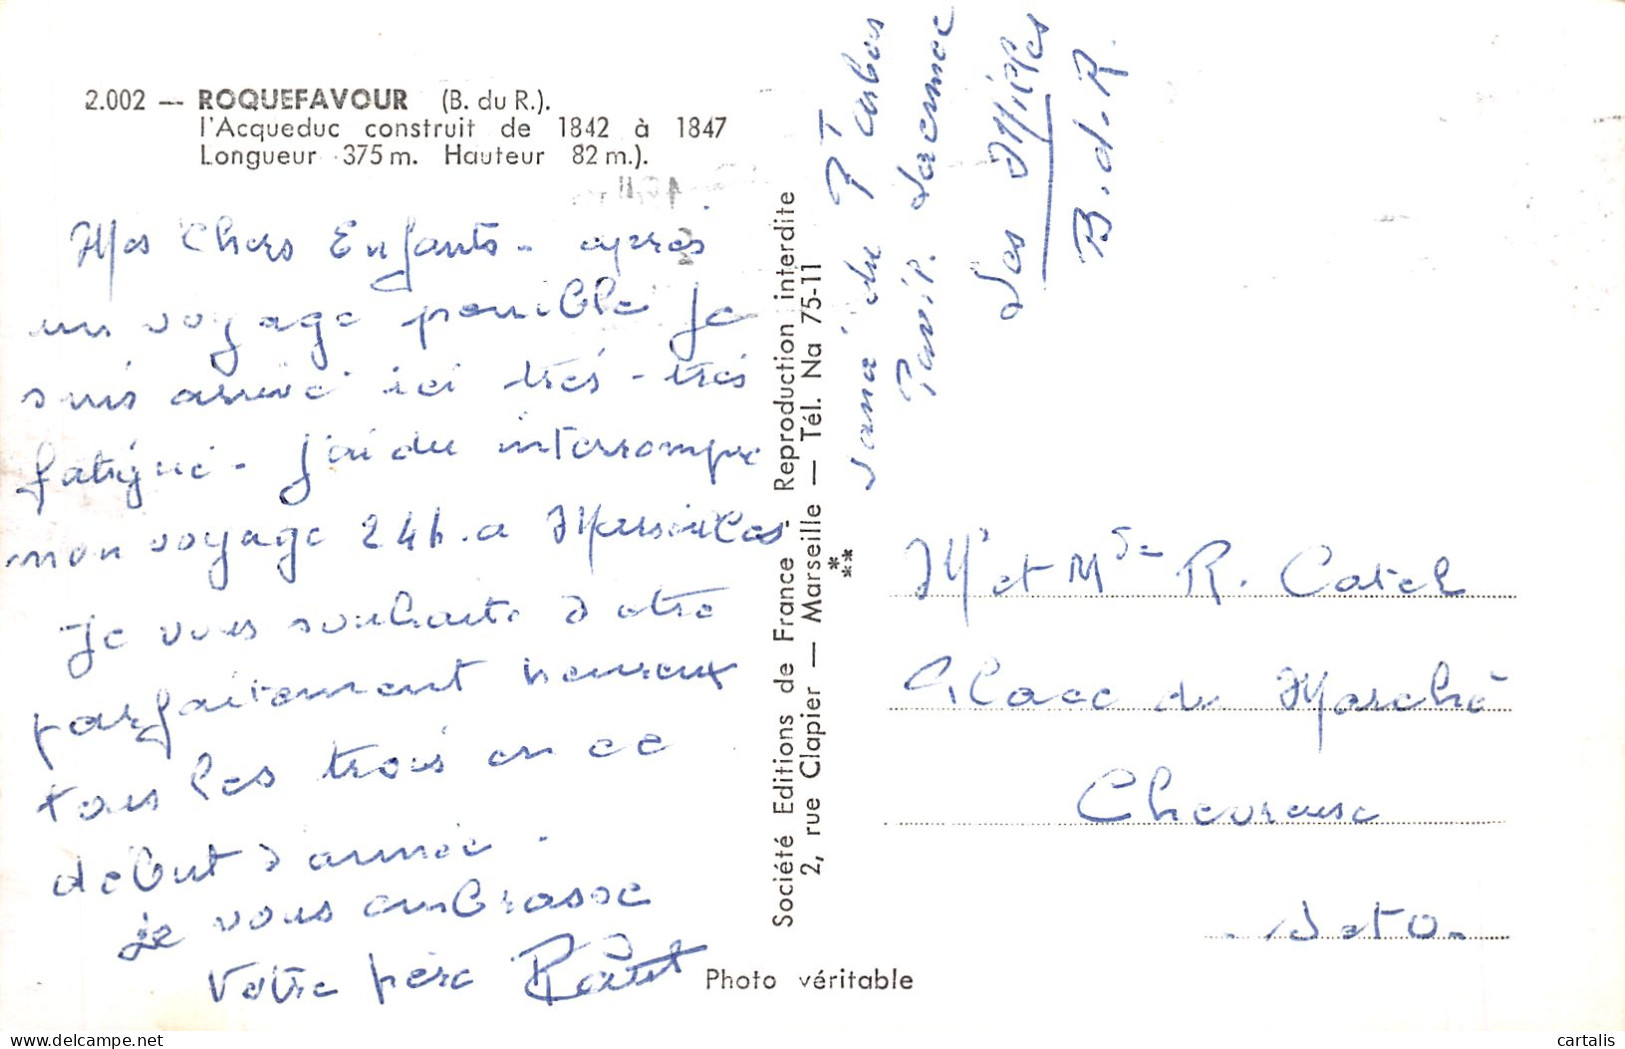 2.002 — ROQUEFAVOUR (B. du R.).
l'Acqueduc construit de 1842 à 1847
Longueur 375 m. Hauteur 82 m.).
Mes Chers Enfants - après
un voyage penible je
suis arrivé ici très - très
fatigué - J'ai du interrompre
mon voyage 24h. a Marseilles
Je vous souhaite d'etre
parfaitement heureux
tous les trois en ce
debut d'année.
je vous embrasse
Votre père
Société Editions de France - Reproduction interdite
2, rue Clapier — Marseille — Tél. Na 75-11
Photo véritable
Sana du
Pavil.
Les Milles
B.d.R.
Mr et Mme R. Catel
Place du Marché
Chevreuse
S et O.
cartalis